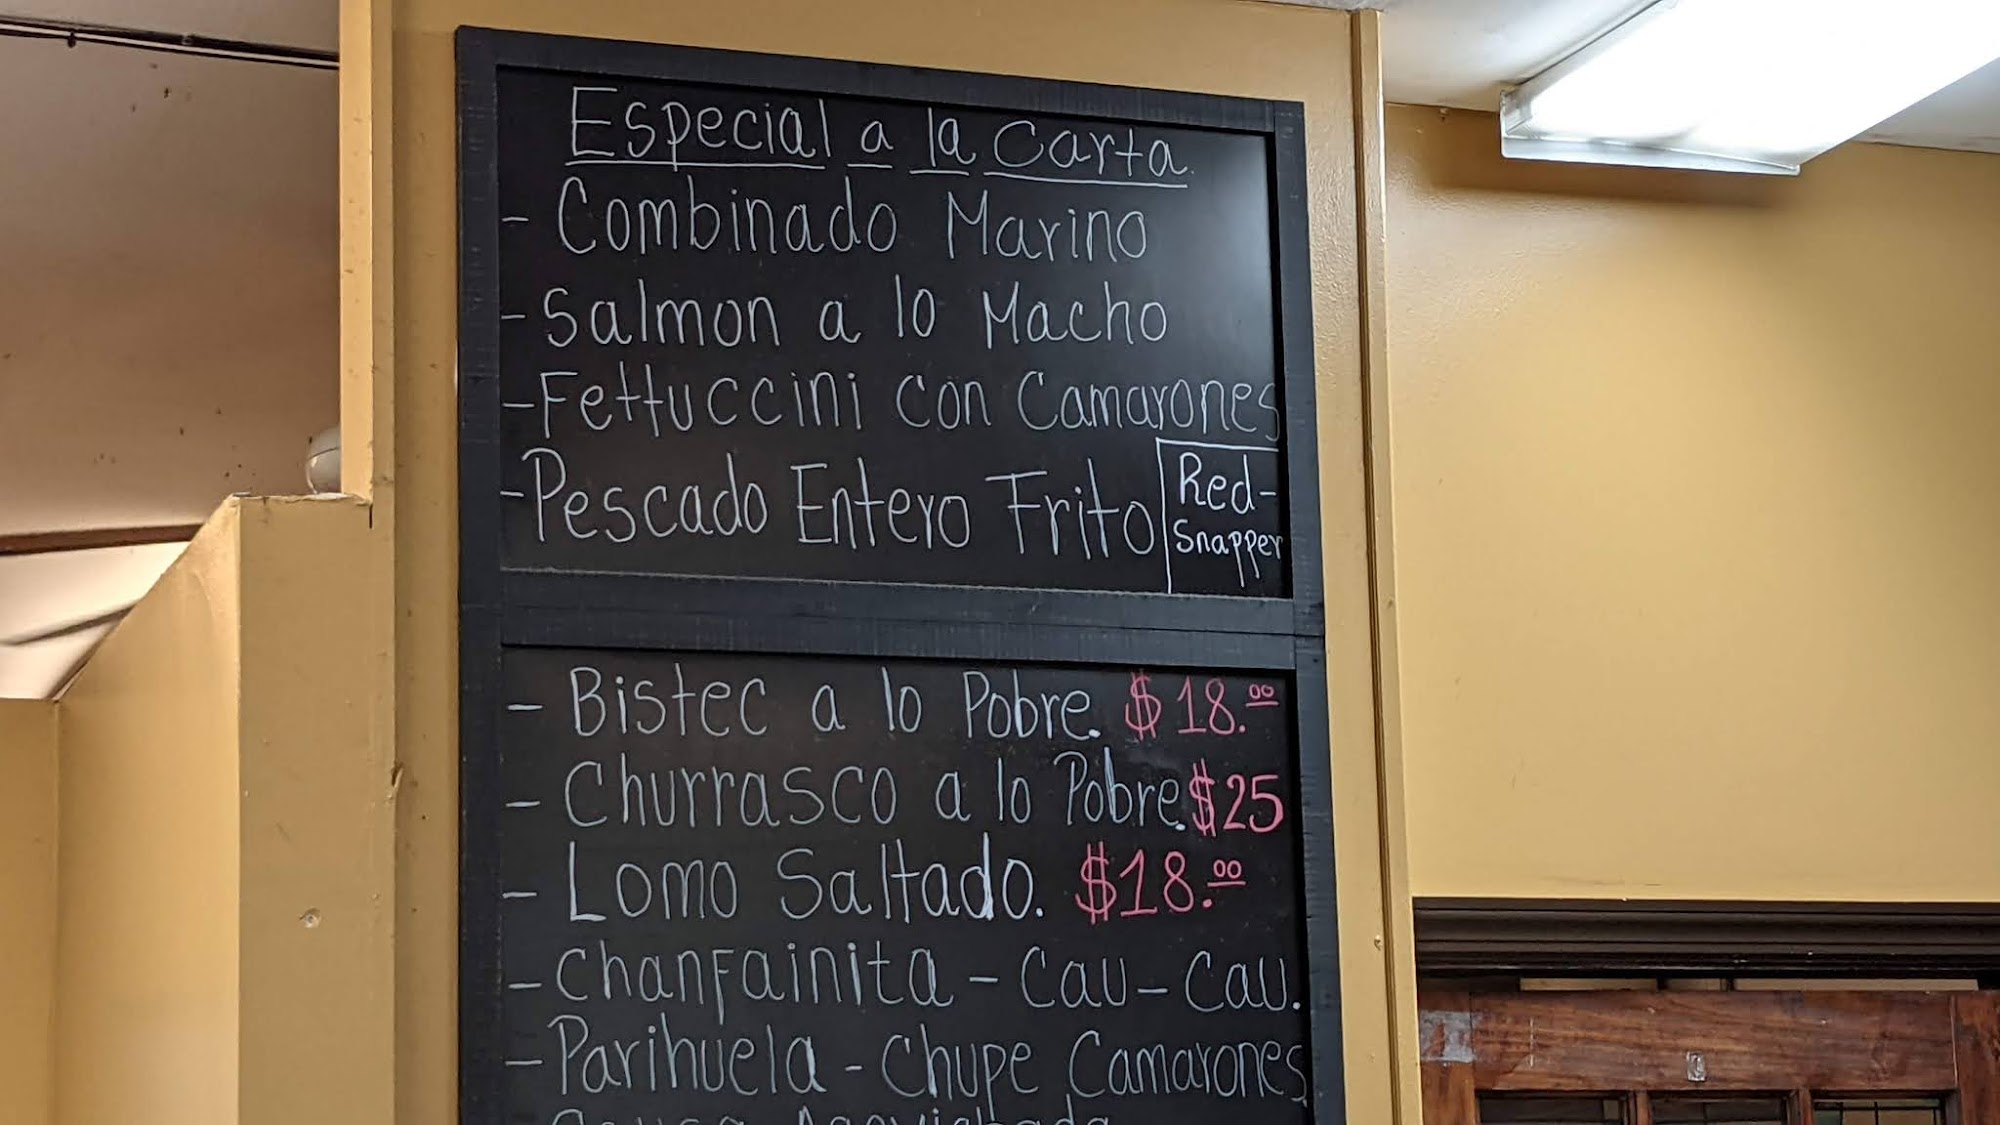 Especial a la Carta
- Combinado Marino
- Salmon a lo Macho
- Fettuccini con Camarones
- Pescado Entero Frito Red-Snapper
- Bistec a lo Pobre. $18.00
- Churrasco a lo Pobre. $25
- Lomo Saltado. $18.00
- Chanfainita - Cau - Cau.
- Parihuela - Chupe Camarones